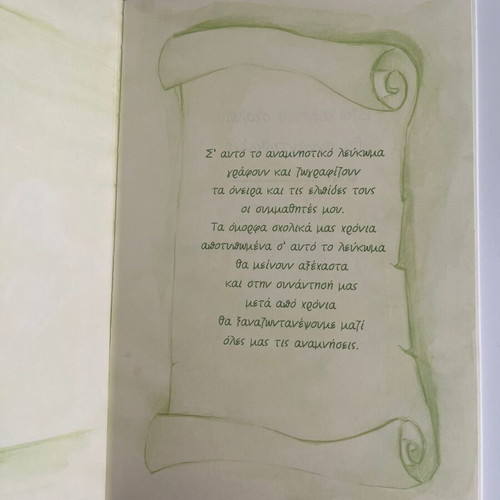 Σ' αυτό το αναμνηστικό λεύκωμα
γράφουν και ζωγραφίζουν
τα όνειρα και τις ελπίδες τους
οι συμμαθητές μου.
Τα όμορφα σχολικά μας χρόνια
αποτυπωμένα σ' αυτό το λεύκωμα
θα μείνουν αξέχαστα
και στην συνάντησή μας
μετά από χρόνια
θα ξαναζωντανέψουμε μαζί
όλες μας τις αναμνήσεις.